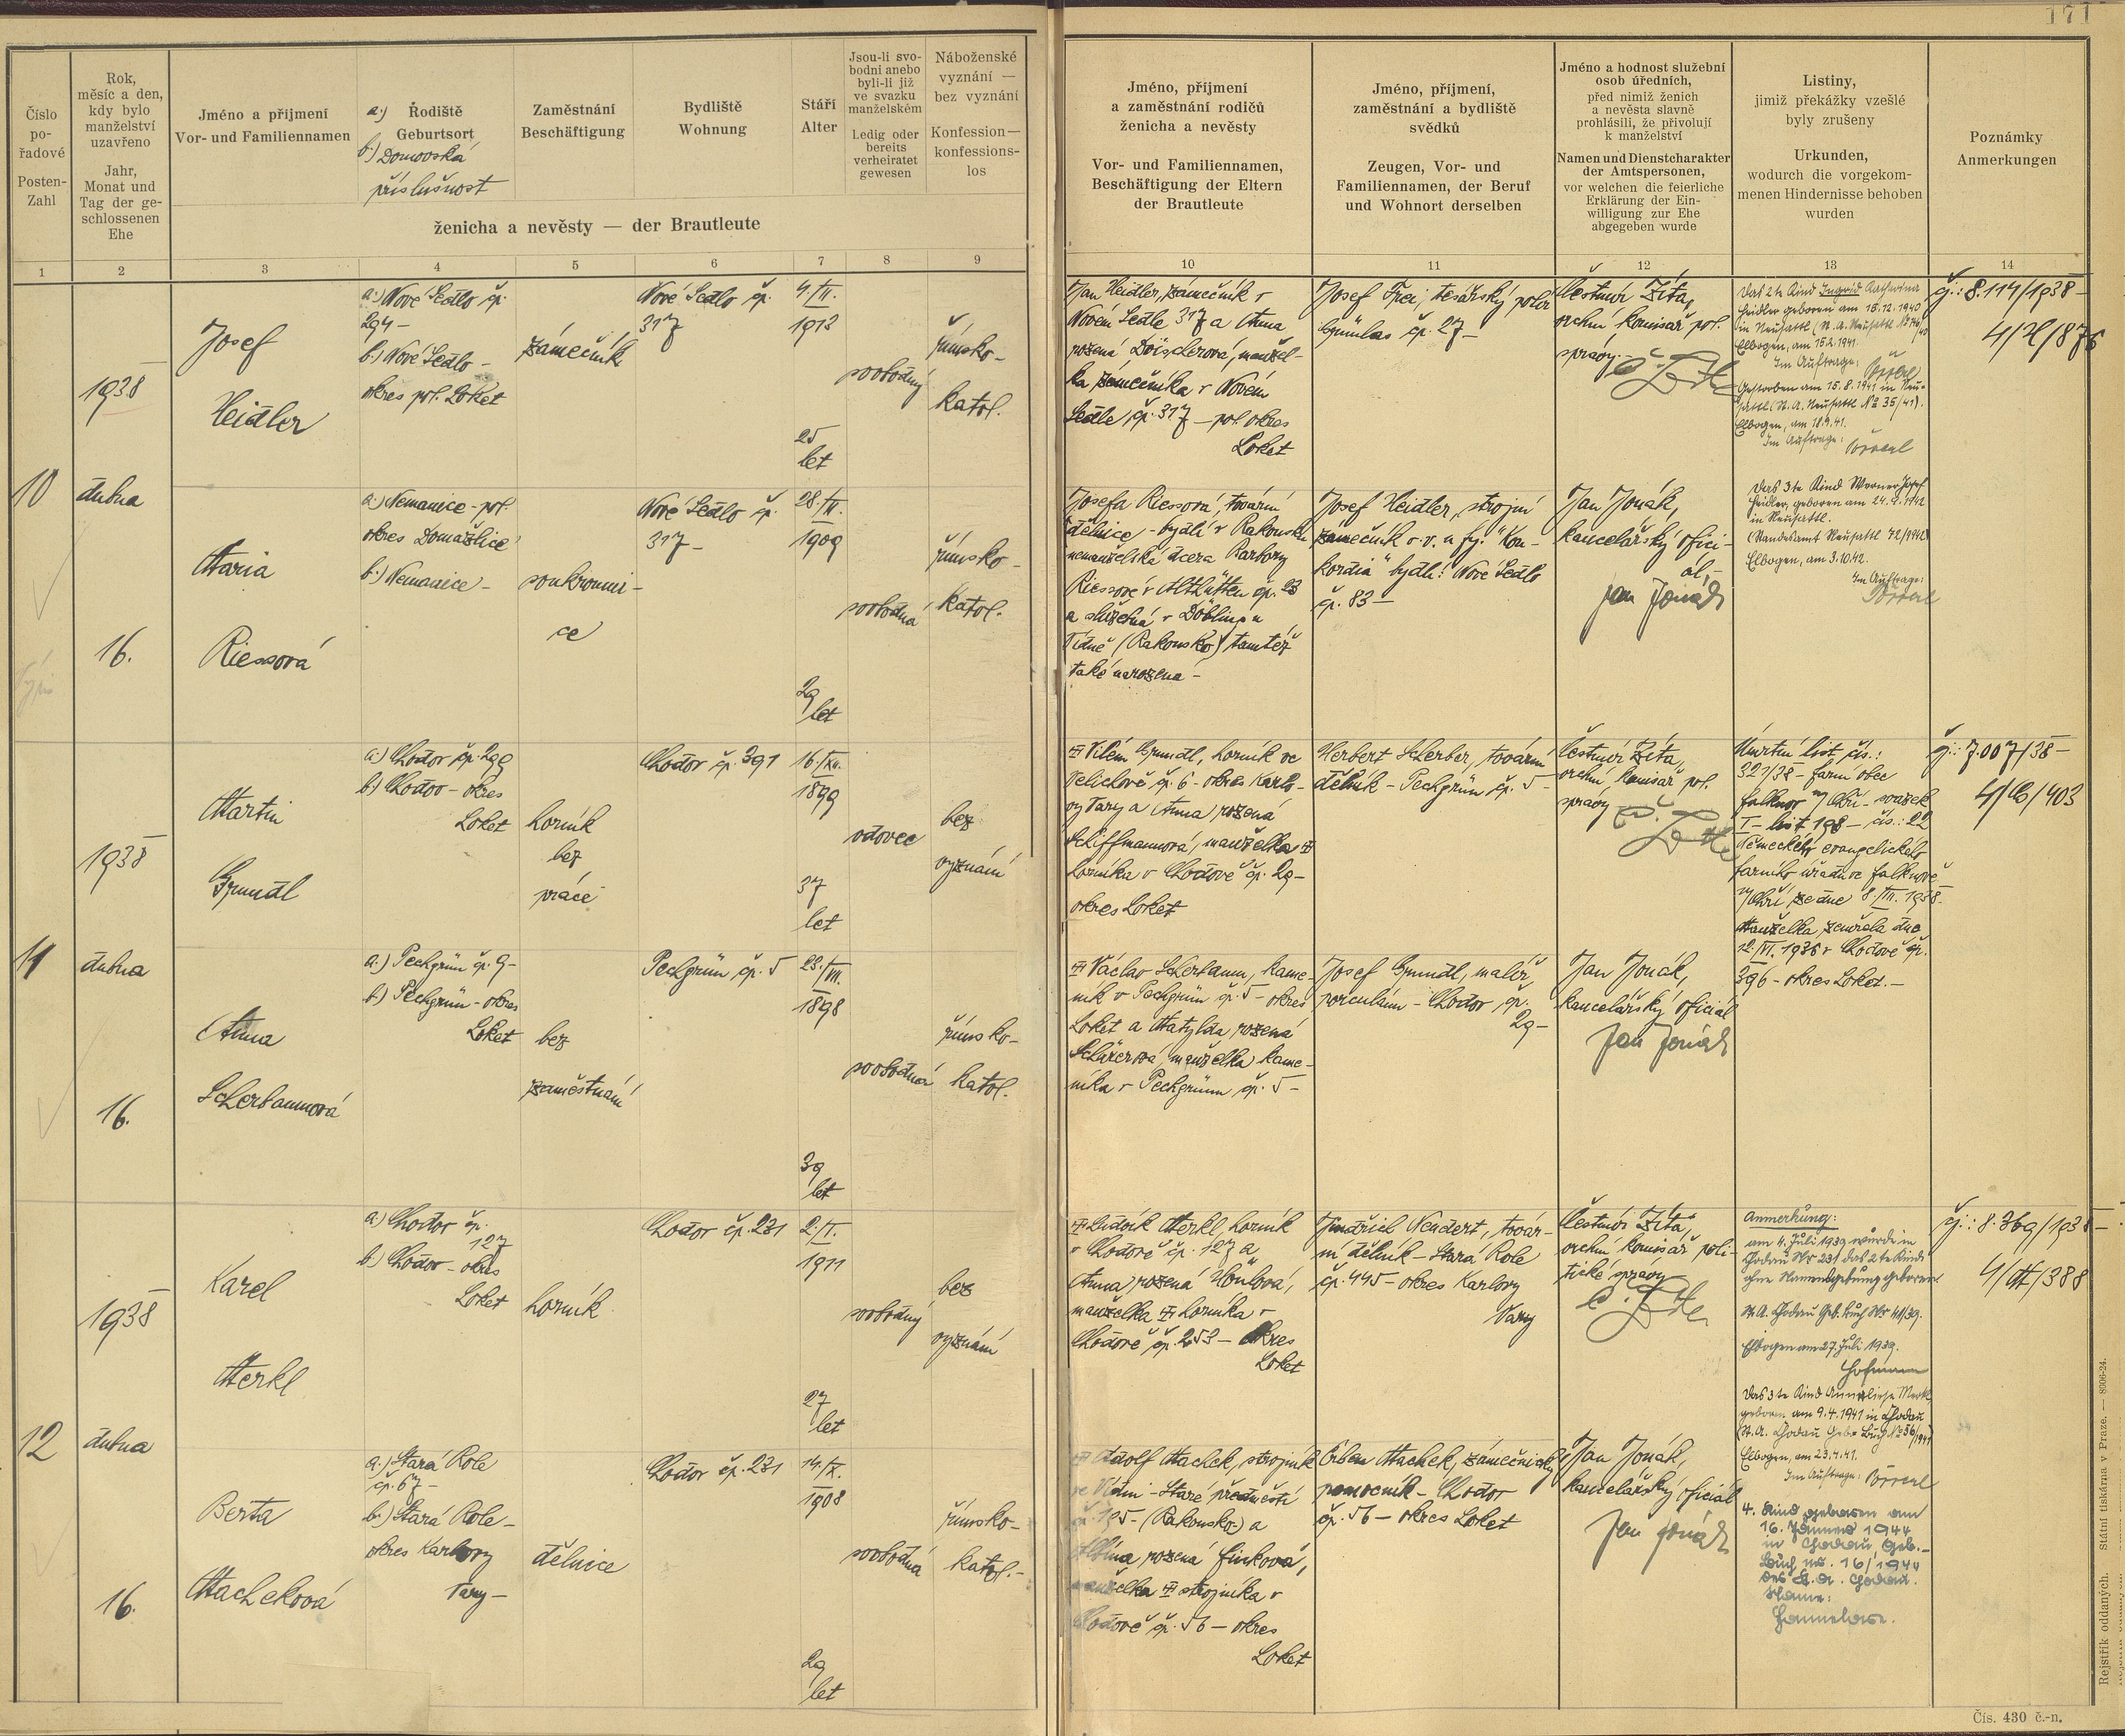 171
Číslo
po-
řadové
Posten-
Zahl
Rok,
měsíc a den,
kdy bylo
manželství
uzavřeno
Jahr,
Monat und
Tag der ge-
schlossenen
Ehe
Jméno a přijmení
Vor- und Familiennamen
a.) Rodiště
Geburtsort
b.) Domovská
příslušnost
Zaměstnání
Beschäftigung
Bydliště
Wohnung
Stáří
Alter
Jsou-li svo-
bodni anebo
byli-li již
ve svazku
manželském
Ledig oder
bereits
verheiratet
gewesen
Náboženské
vyznání —
bez vyznání
Konfession—
konfessions-
los
ženicha a nevěsty — der Brautleute
Jméno, příjmení
a zaměstnání rodičů
ženicha a nevěsty
Vor- und Familiennamen,
Beschäftigung der Eltern
der Brautleute
Jméno, příjmení,
zaměstnání a bydliště
svědků
Zeugen, Vor- und
Familiennamen, der Beruf
und Wohnort derselben
Jméno a hodnost služební
osob úředních,
před nimiž ženich
a nevěsta slavně
prohlásili, že přivolují
k manželství
Namen und Dienstcharakter
der Amtspersonen,
vor welchen die feierliche
Erklärung der Ein-
willigung zur Ehe
abgegeben wurde
Listiny,
jimiž překážky vzešlé
byly zrušeny
Urkunden,
wodurch die vorgekom-
menen Hindernisse behoben
wurden
Poznámky
Anmerkungen
1 2 3 4 5 6 7 8 9 10 11 12 13 14
10
1938
dubna
16.
Josef
Heidler
a.) Nové Sedlo čp.
294-
b.) Nové Sedlo -
okres pol. Loket
zámečník
Nové Sedlo čp.
317
4./II.
1913
25
let
svobodný
římsko-
katol.
Jan Heidler, zámečník v
Novém Sedle 317 a Anna
rozená Döischerová, manžel-
ka zámečníka v Novém
Sedle, čp. 317 - pol. okres
Loket
Josef Frei, tesařský polír
čp. 27-
Čestmír Zíta,
vrchní komisař pol.
správy.-
Das 2te Kind Ingrid Katharina
Heidler geboren am 15.12.1940
in Neusattl
Elbogen, am 15.2.1941.
Im Auftrage:
Gestorben am 15.8.1941 in Neu-
sattl (St. A. Neusattl No 35/41).
Elbogen, am 18.9.41.
Im Auftrage:
čj.: 8.114/1938-
4/H/876
Maria
Riessová
a.) Nemanice - pol.
okres Domažlice
b.) Nemanice -
soukromni-
ce
Nové Sedlo čp.
317-
1909
29
let
svobodná
římsko-
katol.
Josefa Riessová, tovární
dělnice - bydlí v Rakousku
nemanželská dcera Barbory
Riessové v Althütten čp. 23
a služebná v Döblingu
Vídně (Rakousko) tamtéž
také narozena -
Josef Heidler, strojní
zámečník v.v. u fy. "Kon-
kordia" bydlí: Nové Sedlo
čp. 83-
Jan Jonák,
kancelářský ofici-
ál,-
Jan Jonák
Das 3te Kind Werner Josef
Heidler, geboren am 24.9.1942
in Neusattl.
(Standesamt Neusattl 72/1942)
Elbogen, am 3.10.42.
Im Auftrage:
11
1938
dubna
16.
Martin
Grundl
a.) Chodov čp. 299
b.) Chodov - okres
Loket
horník
bez
práce
Chodov čp. 391
16./XII.
1899
37
let
vdovec
bez
vyznání
Vilém Grundl, horník ve
Velichově čp. 6 - okres Karlo-
vy Vary a Anna rozená
Schiffmannová, manželka
horníka v Chodově čp. 29-
okres Loket
Herbert Scherber, tovární
dělník - Pechgrün čp. 5-
Čestmír Zíta,
vrchní komisař pol.
správy
Úmrtní list čís.:
321/38 - farní obec
Falknov n/Ohří - svazek
I - list 198 - čís.: 22
Německého evangelického
farního úřadu ve Falknově
n/Ohří ze dne 8./III. 1938.
Manželka zemřela dne
12./VI. 1936 v Chodově čp.
396 - okres Loket.-
čj.: 7.007/38-
4/G/403
Anna
Scherbaumová
a.) Pechgrün čp. 9-
b.) Pechgrün - okres
Loket
bez
zaměstnání
Pechgrün čp. 5
1898
39
let
svobodná
římsko-
katol.
Václav Scherbaum, kame-
ník v Pechgrün čp. 5 - okres
Loket a Matylda rozená
manželka kame-
níka v Pechgrünu čp. 5-
Josef Grundl, malíř
porculánu - Chodov čp.
29-
Jan Jonák,
kancelářský oficiál
Jan Jonák
12
1938
dubna
16.
Karel
Merkl
a.) Chodov čp.
127
b.) Chodov - okres
Loket
horník
Chodov čp. 231
1911
27
let
svobodný
bez
vyznání
Ludvík Merkl, horník
v Chodově čp. 127 a
Anna, rozená Heulová,
manželka horníka v
Chodově čp. 253 - okres
Loket
Jindřich Neudert, továr-
ní dělník - Stará Role
čp. 445 - okres Karlovy
Vary
Čestmír Zíta,
vrchní komisař poli-
tické správy
Anmerkung:
am 4. Juli 1939 wurde in
Chodau Nr 231 das 2te Kind
ohne Namensgebung geboren
St. A. Chodau Geb. Buch Nr 41/39.
Elbogen am 27. Juli 1939.
Hofmann
Das 3te Kind Anneliese Merkl
geboren am 9.4.1941 in Chodau
(St. A. Chodau Geb. Buch No 56/1941)
Elbogen, am 23.4.41.
Im Auftrage:
čj.: 8.369/1938-
4/M/388
Berta
Macheková
a.) Stará Role
čp. 67-
b.) Stará Role -
okres Karlovy
Vary-
dělnice
Chodov čp. 231
14./X.
1908
29
let
svobodná
římsko-
katol.-
Adolf Machek, strojník
ve Vídni - Staré předměstí
čp. 195 - (Rakousko) a
Albína rozená Finková,
manželka strojníka v
Chodově čp. 56 - okres
Loket
Urban Machek, zámečnický
pomocník - Chodov
čp. 56 - okres Loket
Jan Jonák,
kancelářský oficiál
Jan Jonák
4. Kind geboren am
16. Jänner 1944
in Chodau Geb.-
Buch No. 16/1944
des St. A. Chodau.
Name:
Hannelore.
Rejstřík oddaných. Státní tiskárna v Praze. — 8006-24.
Čís. 430 č.-n.